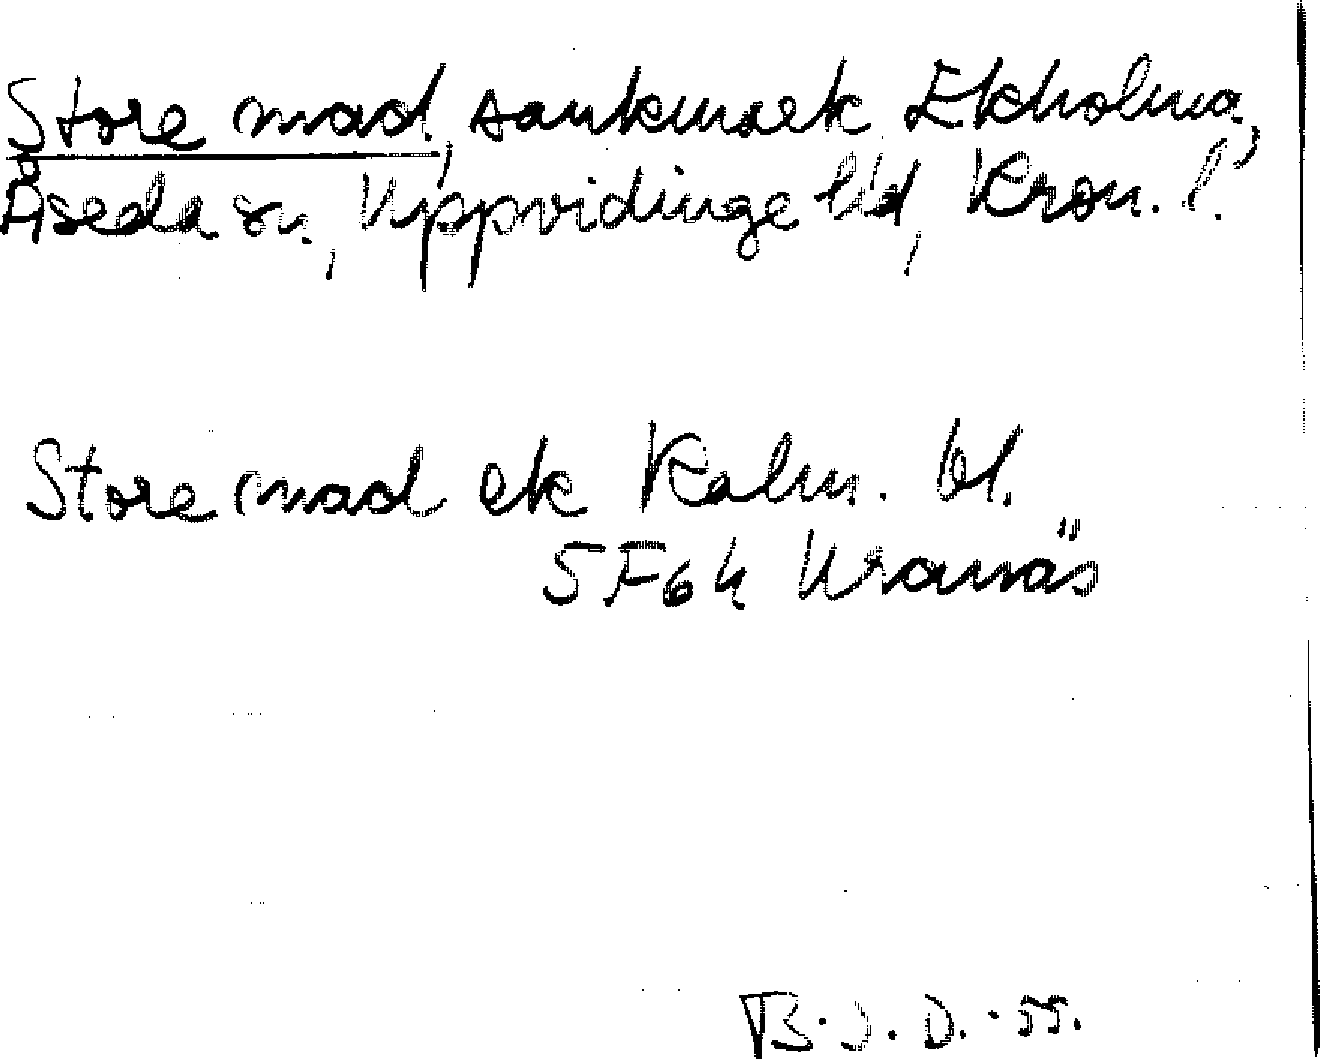 Store mad, sankmark Ekholma,
Åseda sn, Uppvidinge hd, Kron. l.
Store mad ek Kalm. bl.
5F6h Kramnäs
B. J. D. -55.